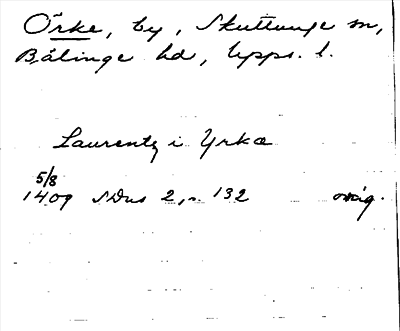 Örke, by, Skuttunge sn,
Bälinge hd, Upps. l.
Laurentz i Yrkæ
5/8
1409 SDns 2, s. 132 orig.